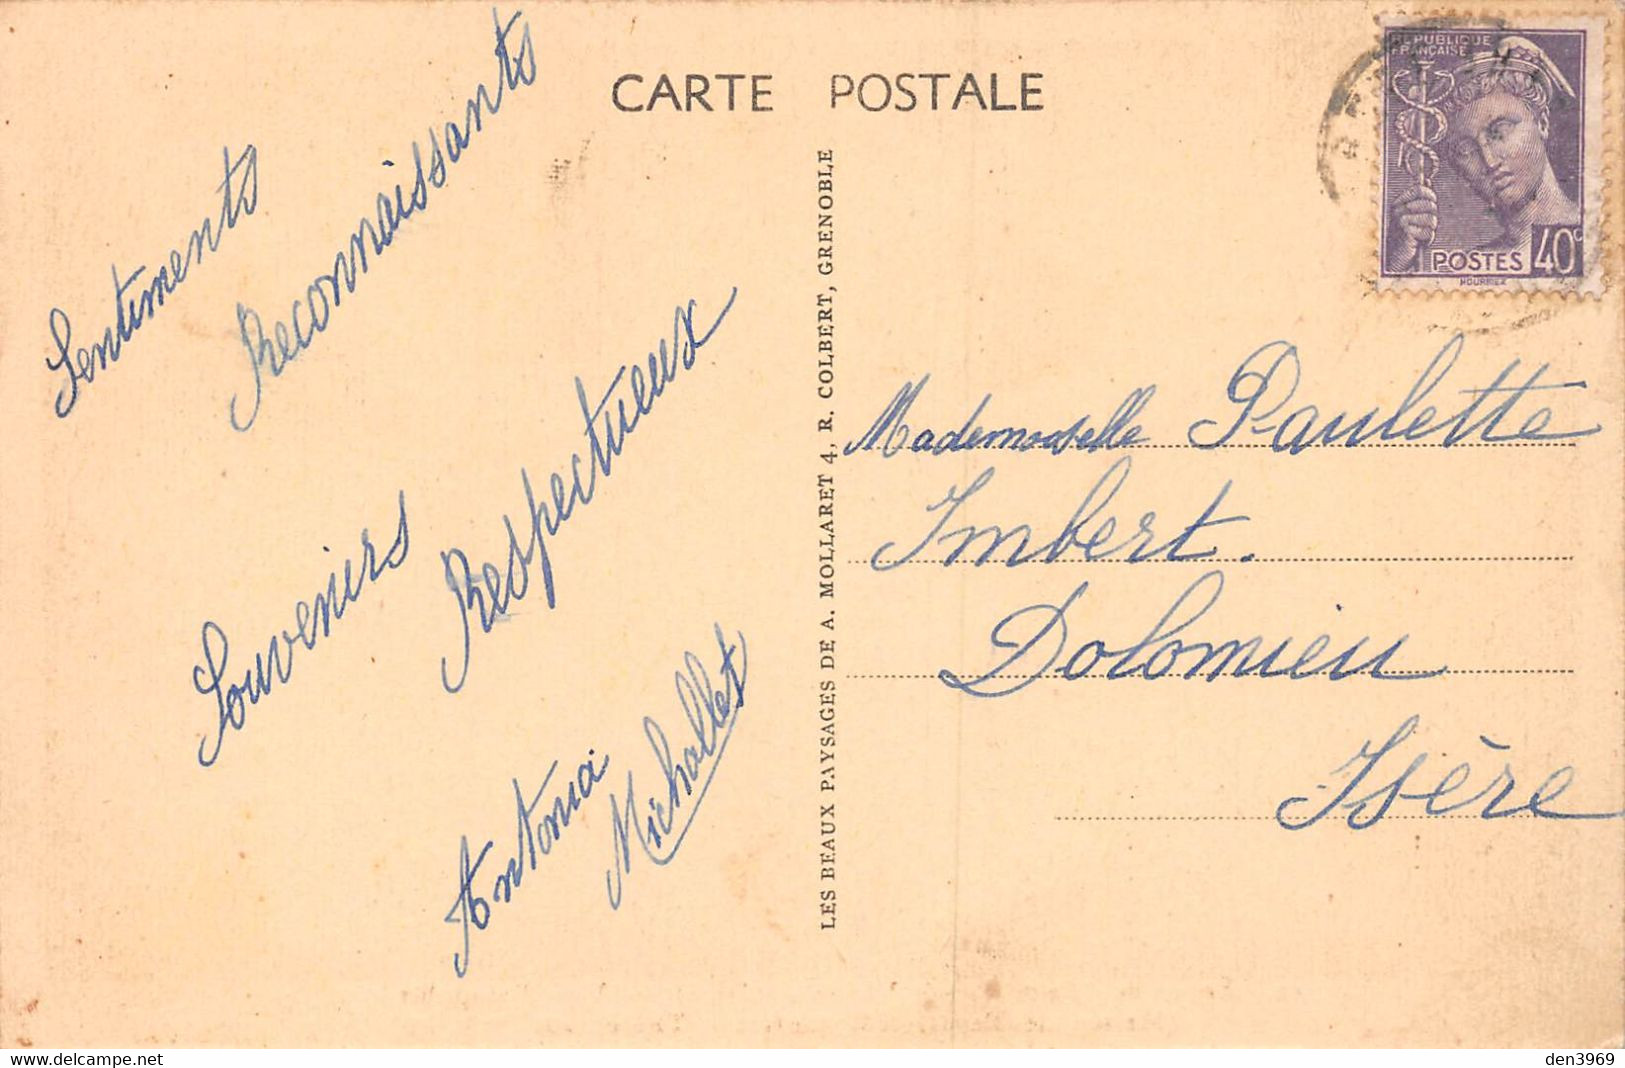 CARTE POSTALE
Sentiments
Reconnaissants
Souvenirs
Respectueux
Antonia
Michallet
LES BEAUX PAYSAGES DE A. MOLLARET 4, R. COLBERT, GRENOBLE
REPUBLIQUE
FRANÇAISE
POSTES 40c
HOURRIEZ
Mademoiselle Paulette
Imbert.
Dolomieu
Isère
https://www.delcampe.net
den3969